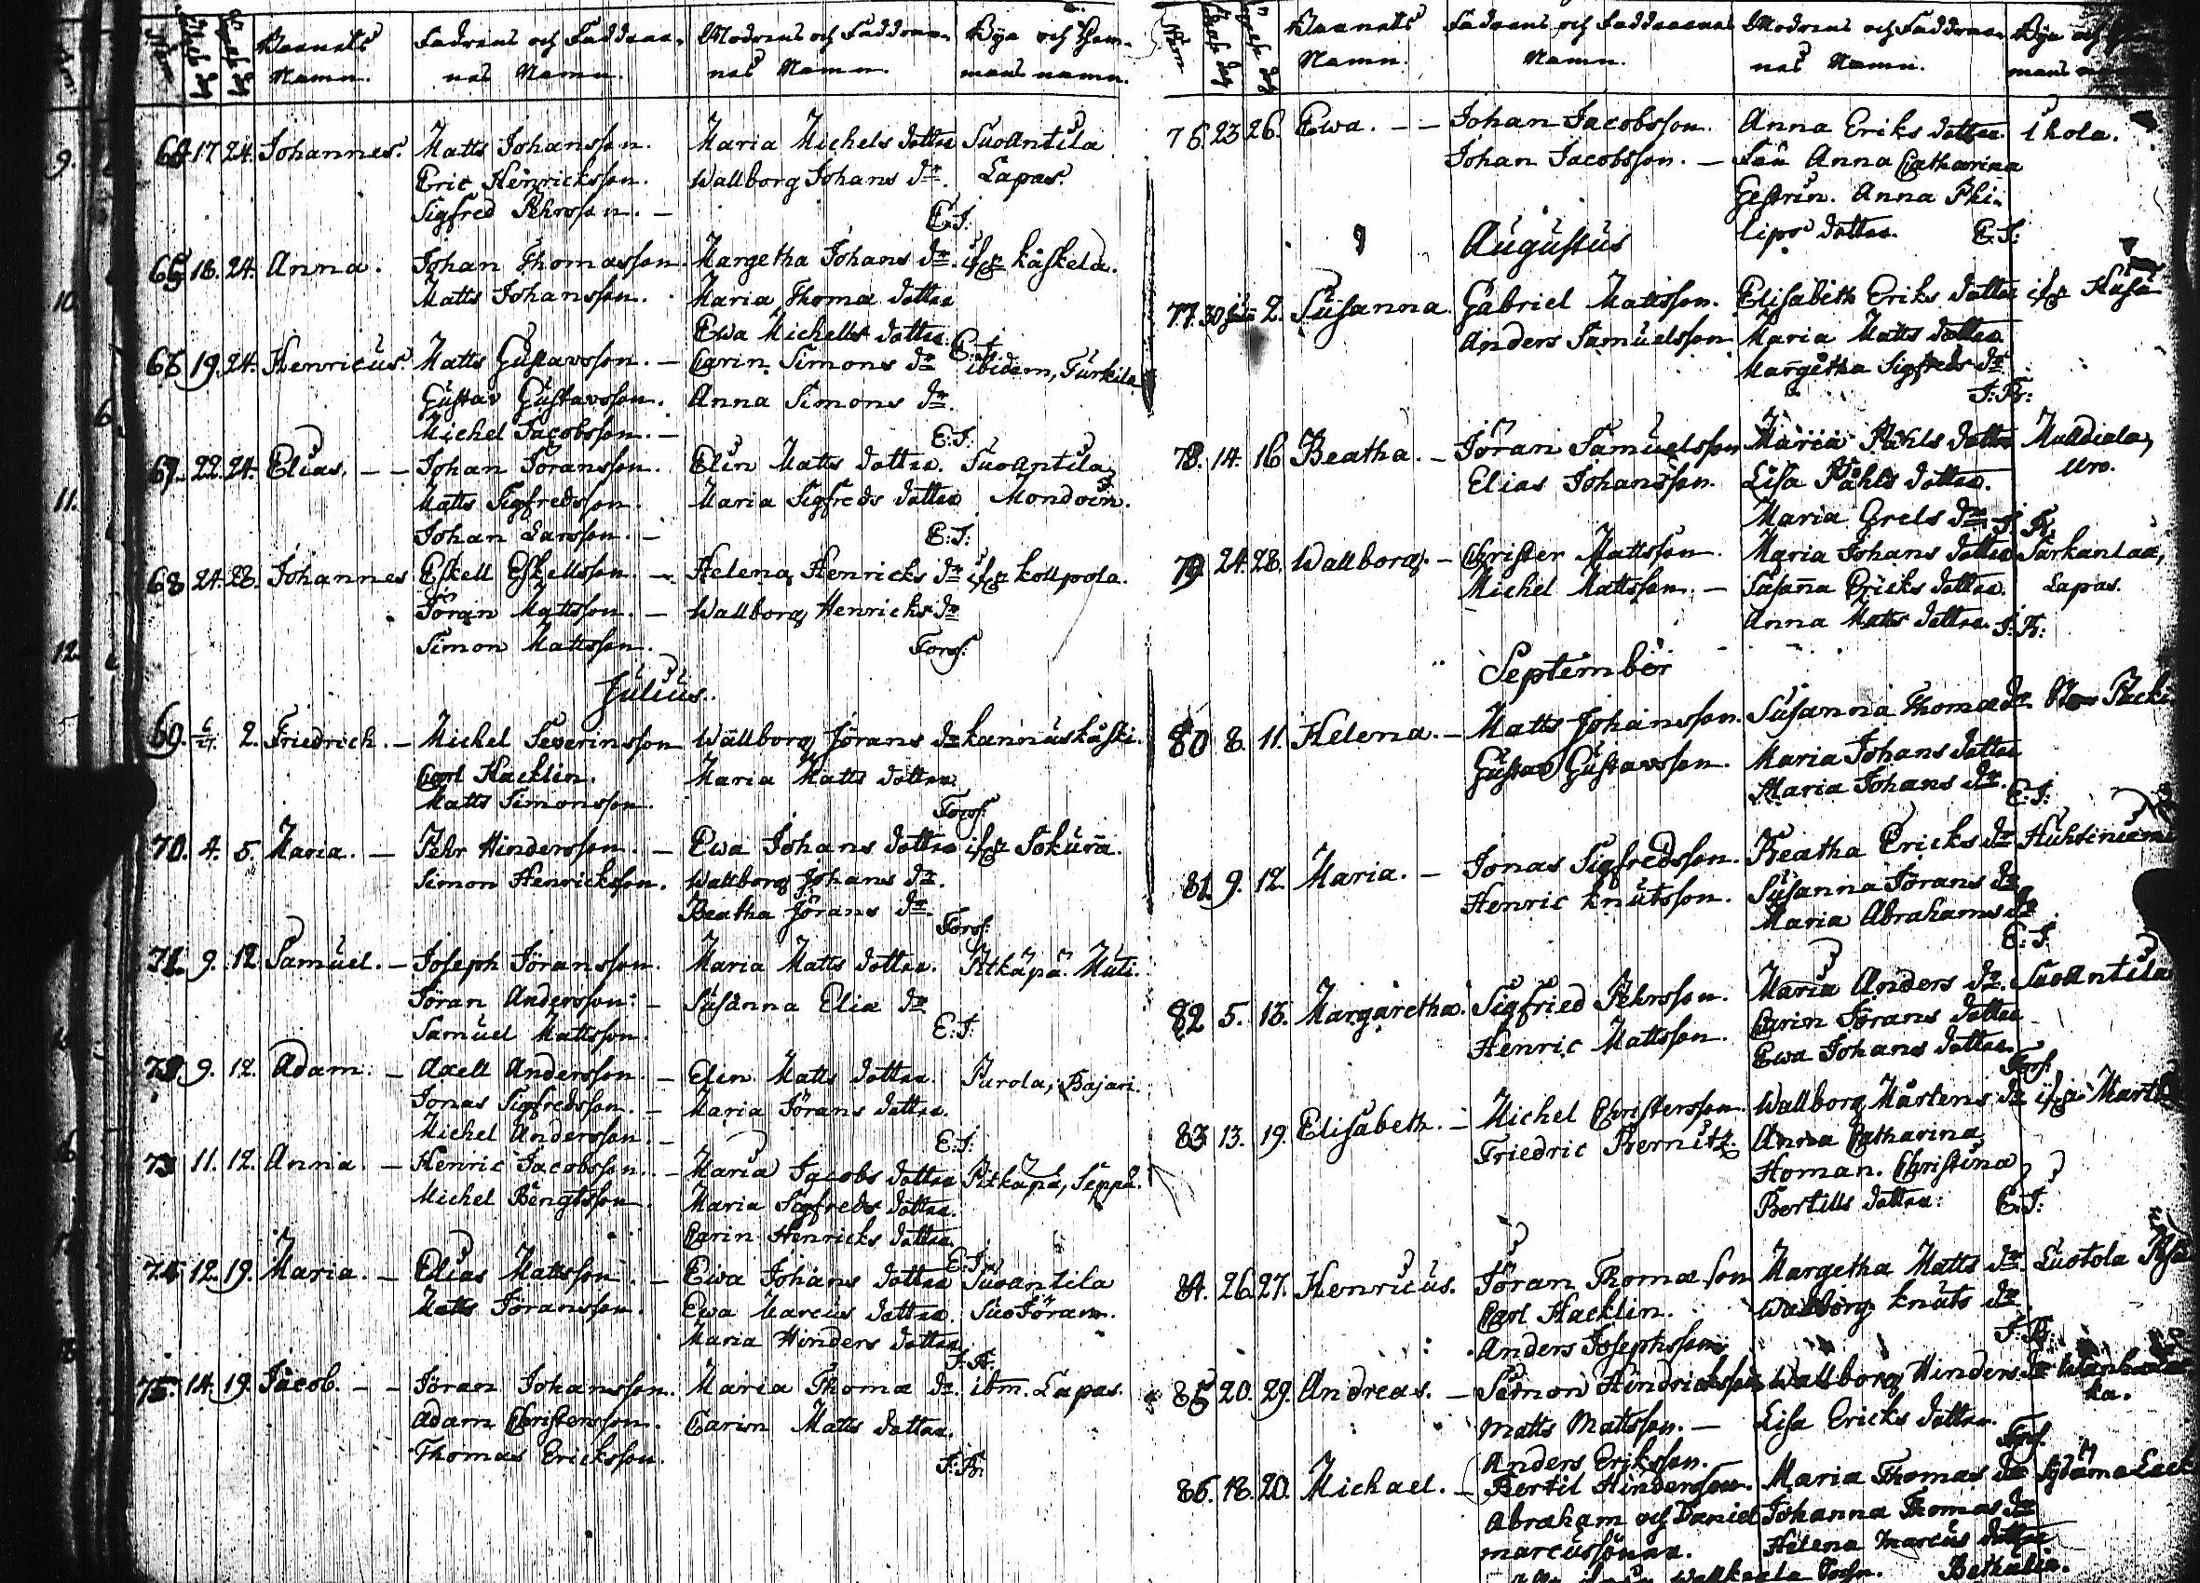 Barnets Namn. Fadrens och Faddrarnas Namn. Modrens och Faddrarnas Namn. Bya och Hemmans namn.
64. 17 24. Johannes. Matts Johansson. Maria Michels dotter Suoantila
Eric Henricksson. Wallborg Johans dr. Lapas.
Sigfred Pehrsson. — E.I:
65 18. 24. Anna. Johan Thomasson. Margetha Johans dr. käskela.
Matts Johansson. Maria Thomæ dotter
Ewa Michells dotter. E:I
66 19. 24. Henricus. Matts Gustavsson. — Carin Simons dr ibidem, Turkila
Gustav Gustavsson. Anna Simons dr.
Michel Jacobsson. — E:I:
67. 22. 24. Elias. — Johan Jöransson. Elin Matts dotter. Suoantila,
Matts Sigfredsson. Maria Sigfreds dotter Mondoin.
Johan Larsson. — E:I:
68 24. 28. Johannes Eskell Eskellsson. — Helena Henricks dr kollpola.
Jöran Mattsson. — Wallborg Henricks dr
Simon Mattsson. Forss:
Julius.
69. 2. Friedrich. — Michel Severinsson Wallborg Jörans dr kannuskäski.
Carl Hacklin. Maria Matts dotter.
Matts Simonsson. Forss:
70. 4. 5. Maria. — Pehr Hindersson. — Ewa Johans dotter Sokura.
Simon Henricksson. Wallborg Johans dr.
Beatha Jörans dr. Forss:
71. 9. 12 Samuel. — Joseph Jöransson. Maria Matts dotter. Pitkäpä. Muti.
Jöran Andersson: — Susanna Eliæ dr
Samuel Mattsson. E:I:
72 9. 12. Adam. — Axell Andersson. — Elin Matts dotter. Purola, Bajari.
Jonas Sigfredsson. — Maria Jörans dotter.
Michel Andersson. — E:I:
73 11. 12. Anna. — Henric Jacobsson. — Maria Jacobs dotter Pitkäpä, Seppä.
Michel Bengtsson. Maria Sigfreds dotter.
Carin Henricks dotter.
E:I:
74 12. 19. Maria. — Elias Mattsson. — Ewa Johans dotter Suoantila
Matts Jöransson. Ewa Marcus dotter. SuoJöram.
Maria Hinders dotter
75. 14. 19. Jacob. — Jöran Johansson. Maria Thomæ dr. ibm. Lapas.
Adam Christersson. Carin Matts dotter.
Thomas Ericksson.
Barnets Namn. Fadrens och Faddrarnas Namn. Modrens och Faddrarnas Namn. Bya och
76. 23 26. Ewa. — Johan Jacobsson. Anna Eriks dotter. ihola.
Johan Jacobsson. — Anna Catharina
Gestrin. Anna Phi-
lips dotter. E.I:
Augustus
77. 30 2. Susanna. Gabriel Mattsson. Elisabeth Eriks dotter
Anders Samuelsson Maria Matts dotter
Margetha Sigfreds dr
78. 14. 16 Beatha. — Jöran Samuelsson Maria Påhls dotter Mulldiala,
Elias Johansson. Lisa Påhls dotter. Uro.
Maria Grels dr
79 24. 28. Wallborg. — Christer Mattsson. Maria Johans dotter Sarkanlax,
Michel Mattsson. — Susanna Ericks dotter. Lapas.
Anna Matts dotter.
September
80 8. 11. Helena. — Matts Johansson. Susanna Thomæ dr.
Gustav Gustavsson. Maria Johans dotter
Maria Johans dr. E:I:
81 9. 12. Maria. — Jonas Sigfredsson. Beatha Ericks dr
Henric knutsson. Susanna Jörans dr
Maria Abrahams dr
E:I
82 5. 13. Margaretha. Sigfried Pehrsson. Maria Anders dr. Suoantila
Henric Mattsson. Carin Jörans dotter
Ewa Johans dotter. Forss:
83 13. 19. Elisabeth. — Michel Christersson. Wallborg Mårtens dr
Friedric Bernitz. Anna Catharina
Homan. Christina
Bertills dotter: E:I:
84. 26. 27. Henricus. Jöran Thomæ son Margetha Matts dr. Luotola
Carl Hacklin. Wallborg knuts dr
Anders Josephsson
85 20. 29. Andreas. — Simon Hindricksson Wallborg Hinders dr
Matts Mattsson. — Lisa Ericks dotter.
Anders Eriksson. Forss:
86. 18. 20. Michael. — Bertil Hindersson. Maria Thomas dr
Abraham och Daniel Johanna Thomas dr
marcussönar. Helena Marcus dotter